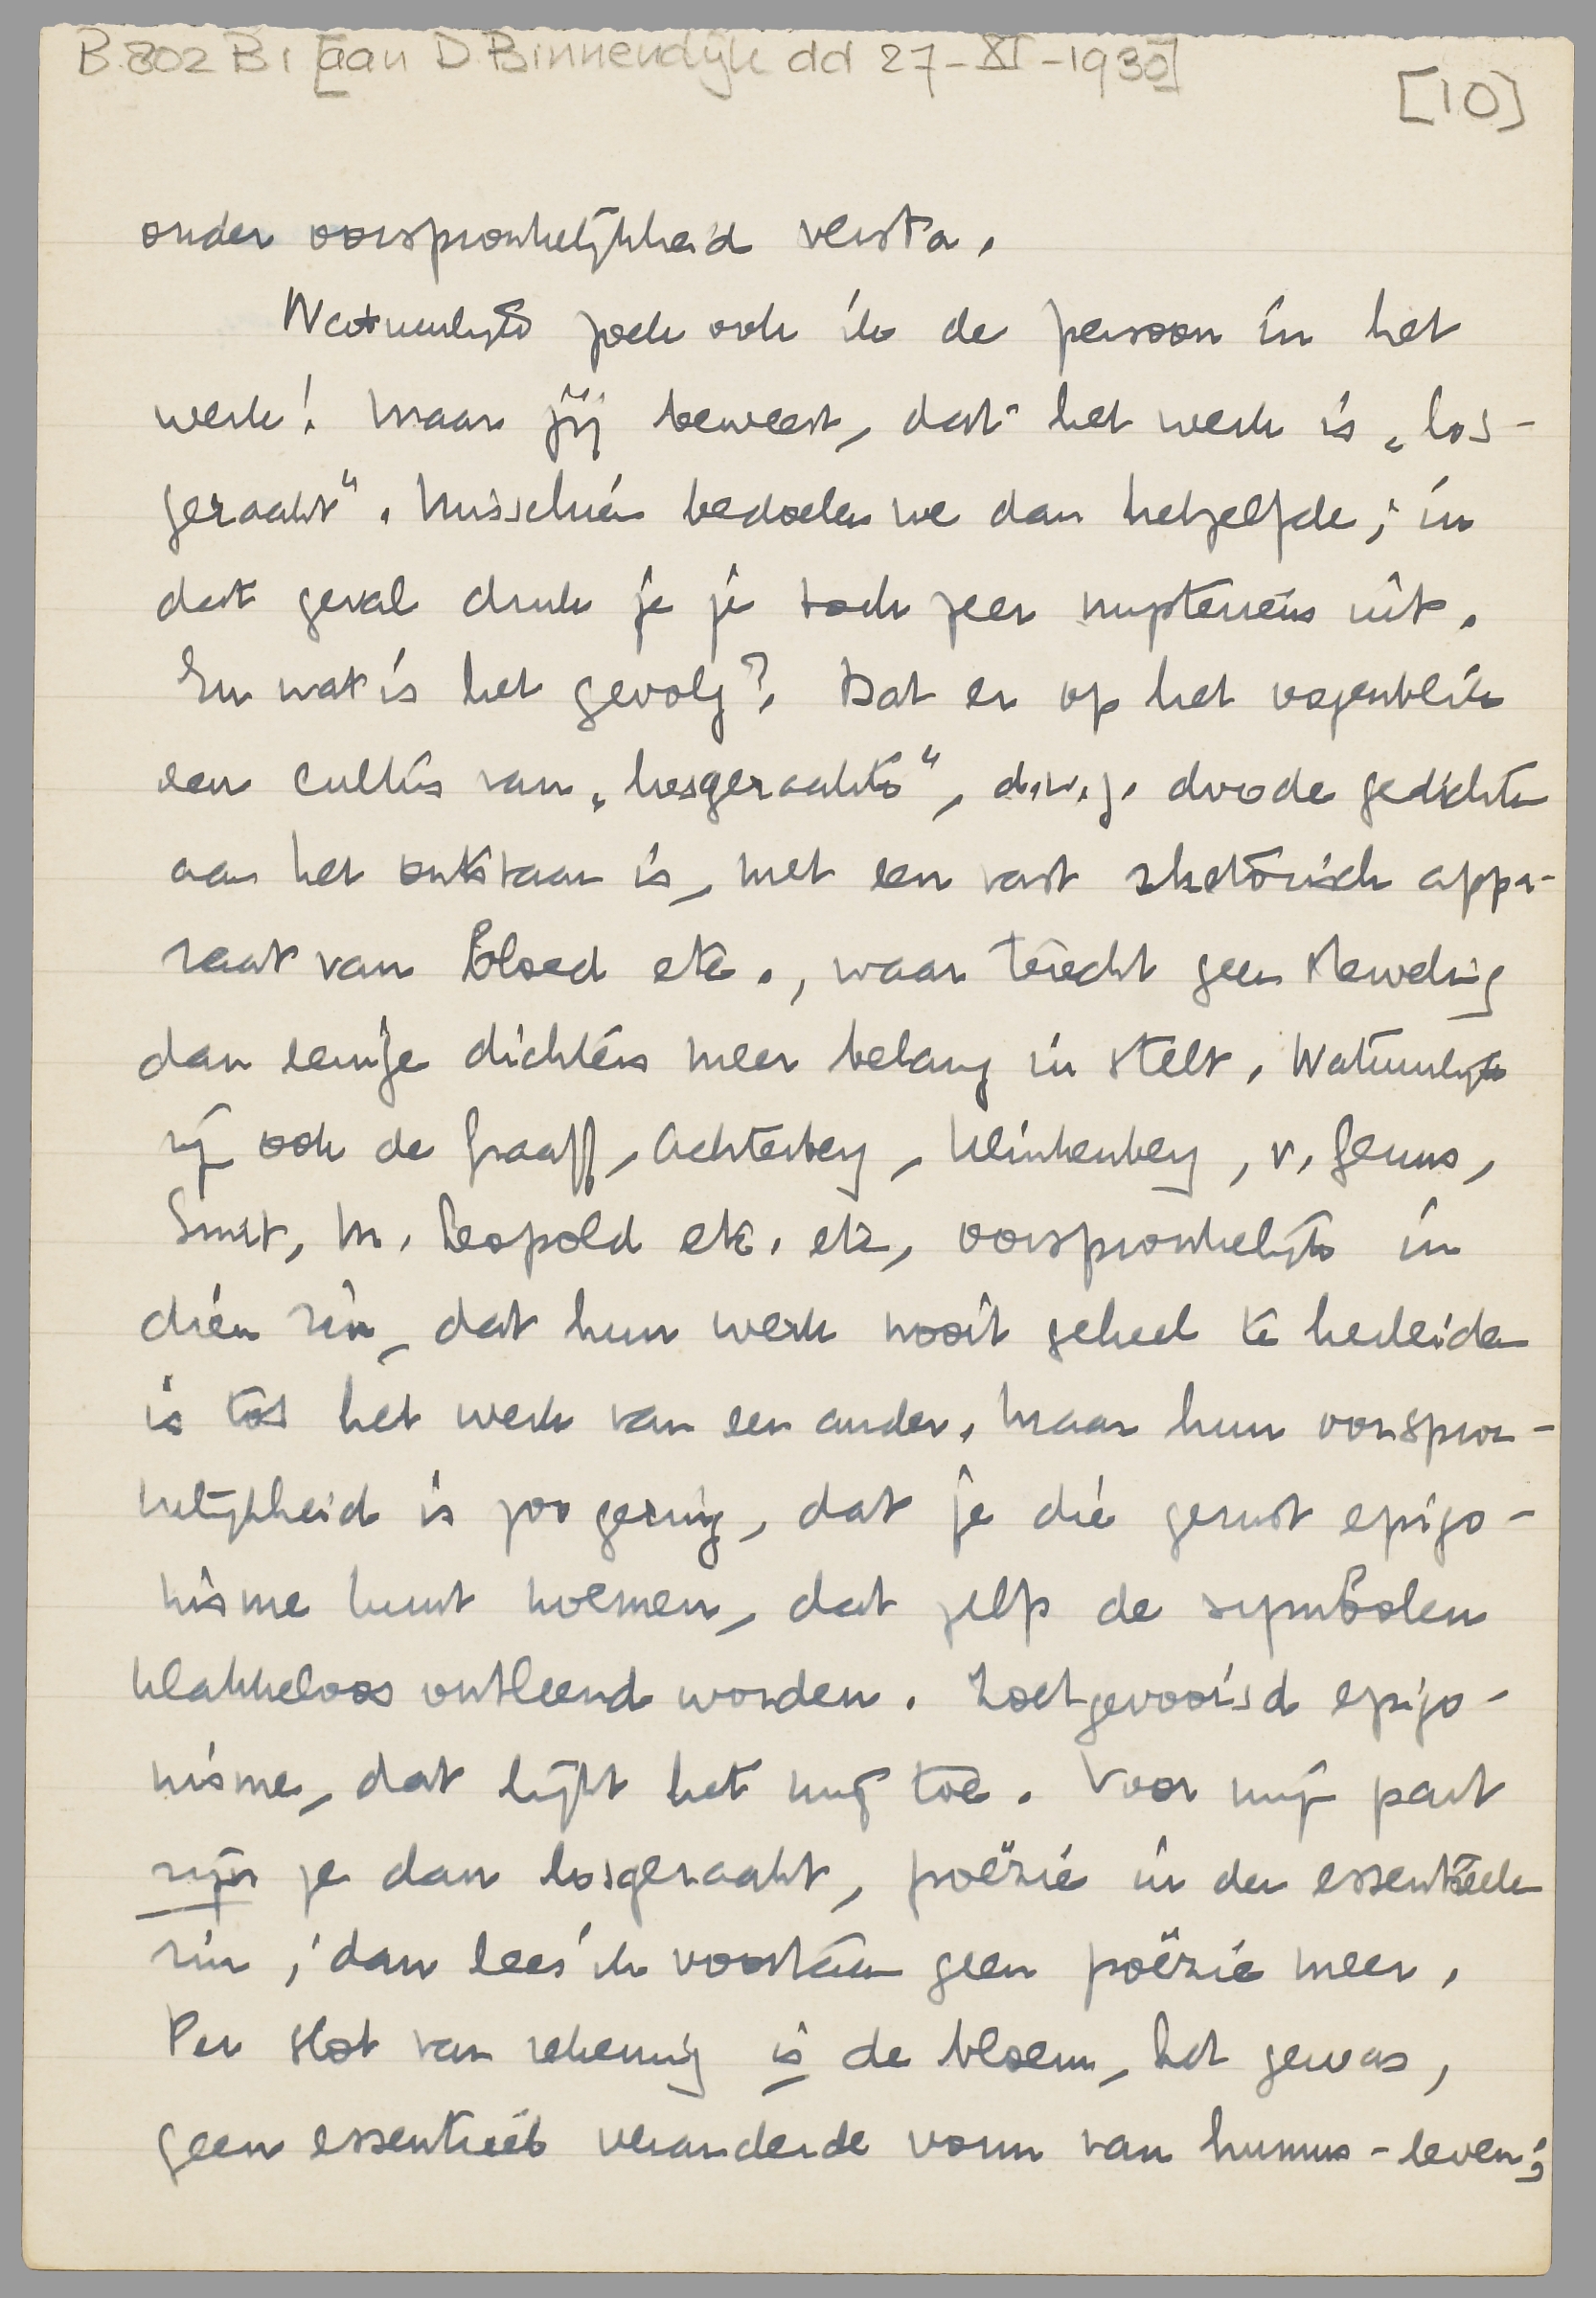 B 802 B1 [aan D Binnendijk dd 27-XI-1930]
[10]
onder oorspronkelijkheid versta.
Natuurlijk zoek ook ik de persoon in het
werk! Maar jij beweert, dat het werk is „los-
geraakt". Misschien bedoelen we dan hetzelfde; in
dat geval druk je je toch zeer mysterieus uit.
En wat is het gevolg? Dat er op het oogenblik
een cultus van „losgeraakte", d.w.z. doode gedichten
aan het ontstaan is, met een vast rhetorisch appa-
raat van bloed etc., waar terecht geen sterveling
dan eenige dichters meer belang in stelt. Natuurlijk
zijn ook de Graaff, Achterberg, Klinkenberg, v. Geuns,
Smit, M. Leopold etc. etc, oorspronkelijk in
dien zin, dat hun werk nooit geheel te herleiden
is tot het werk van een ander. Maar hun oorspron-
kelijkheid is zoo gering, dat je die gerust epigo-
nisme kunt noemen, dat zelfs de symbolen
klakkeloos ontleend worden. Zoetgevooisd epigo-
nisme, dat lijkt het mij toe. Voor mijn part
zijn ze dan losgeraakt, poëzie in den essentieelen
zin; dan lees ik voortaan geen poëzie meer.
Per slot van rekening is de bloem, het gewas,
geen essentieel veranderde vorm van humus-leven;